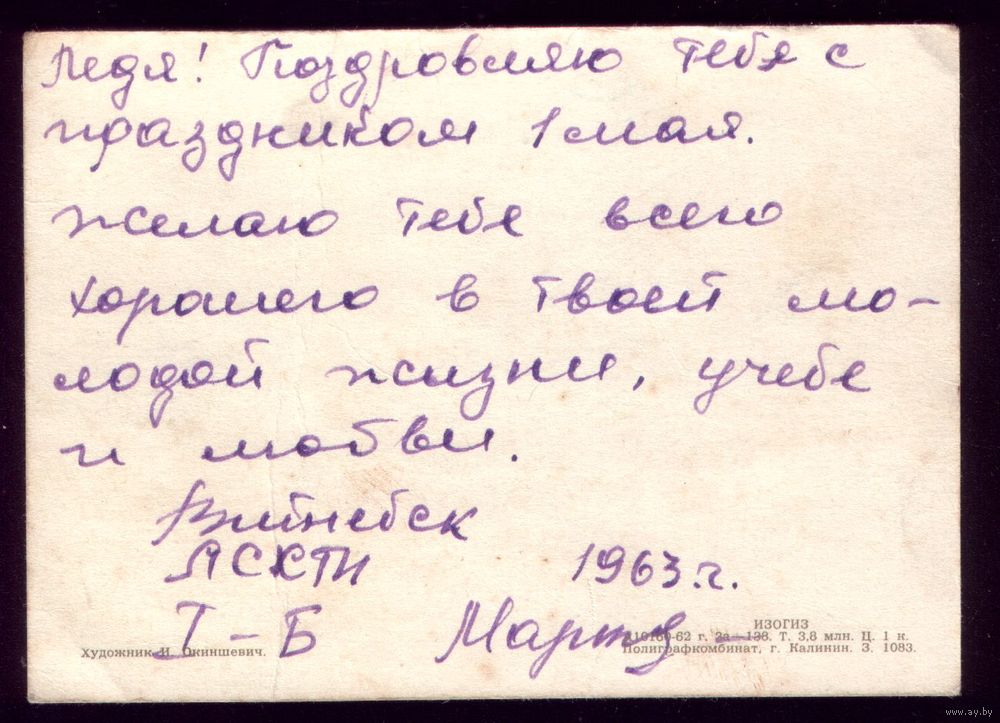 Ледя! Поздровляю тебя с
праздником 1 мая.
желаю тебе всего
хорошего в твоей мо-
лодой жизни, учебе
и любви.
Витебск
1963 г.
I-Б
ИЗОГИЗ
Художник И. Окиншевич.
62 г. 2а-138. Т. 3,8 млн. Ц. 1 к.
Полиграфкомбинат, г. Калинин. З. 1083.
www.ay.by